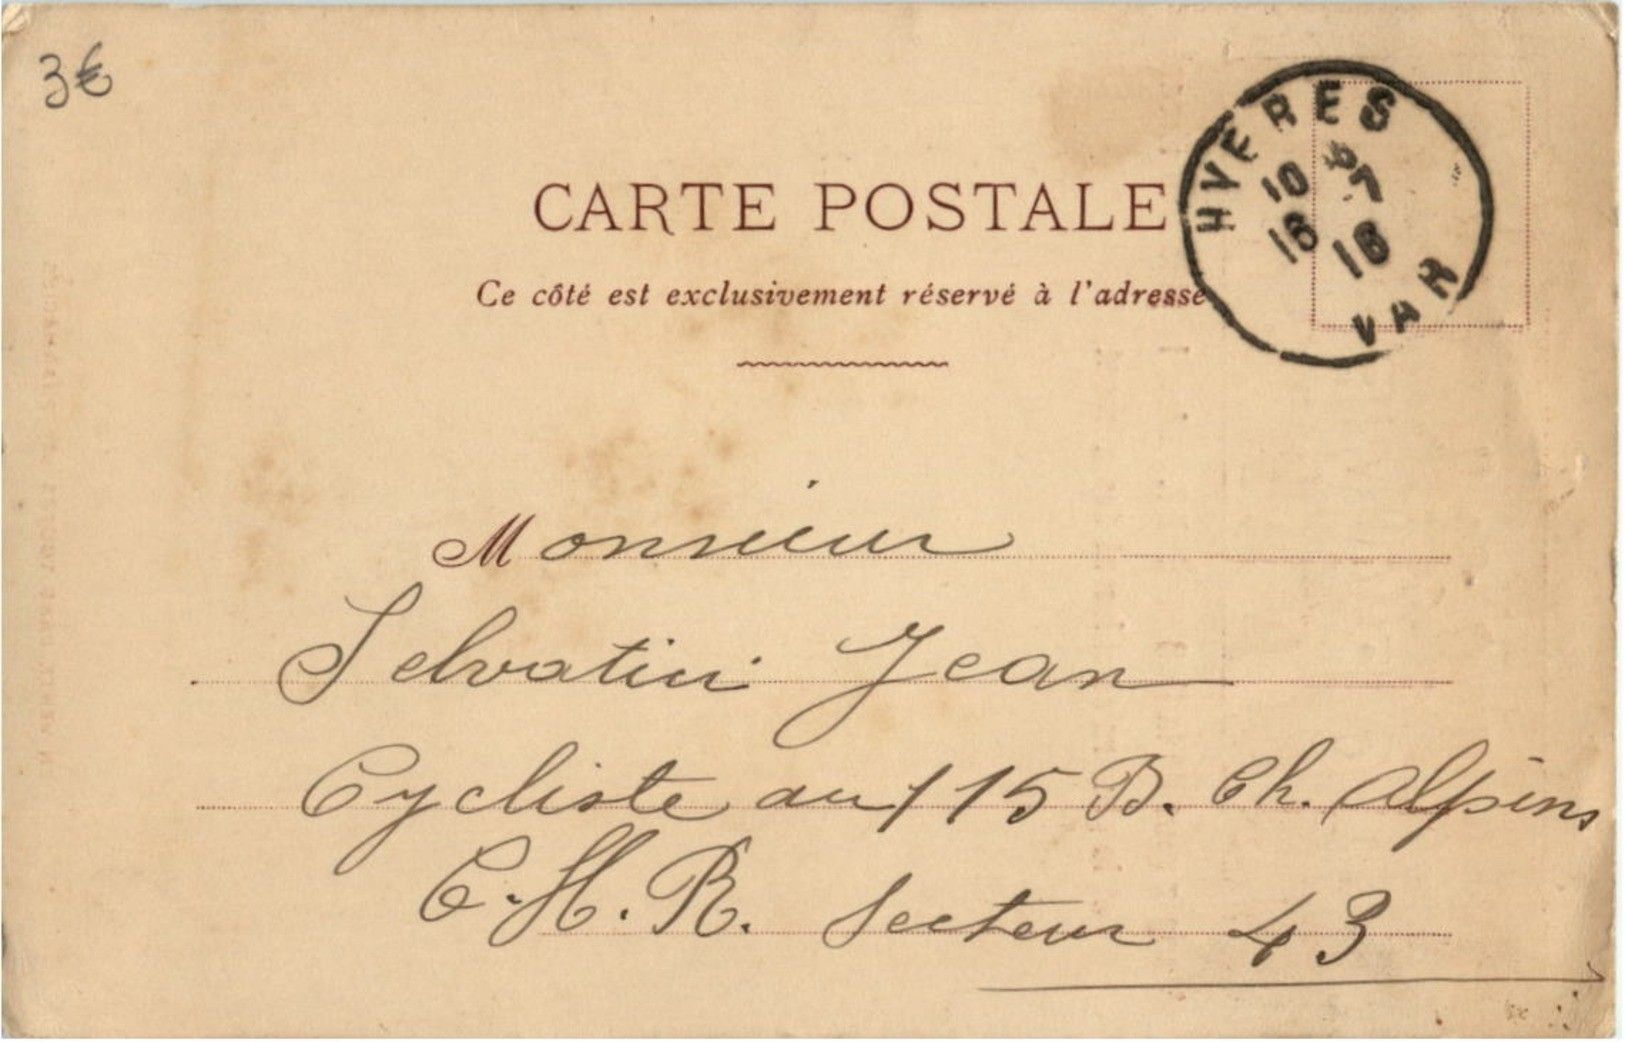 3€
CARTE POSTALE
Ce côté est exclusivement réservé à l'adresse
HYERES
10
16 16
VAR
Monsieur
Selvatini Jean
Cycliste au 115 B. Ch. Alpins
C.H.R. Secteur 43